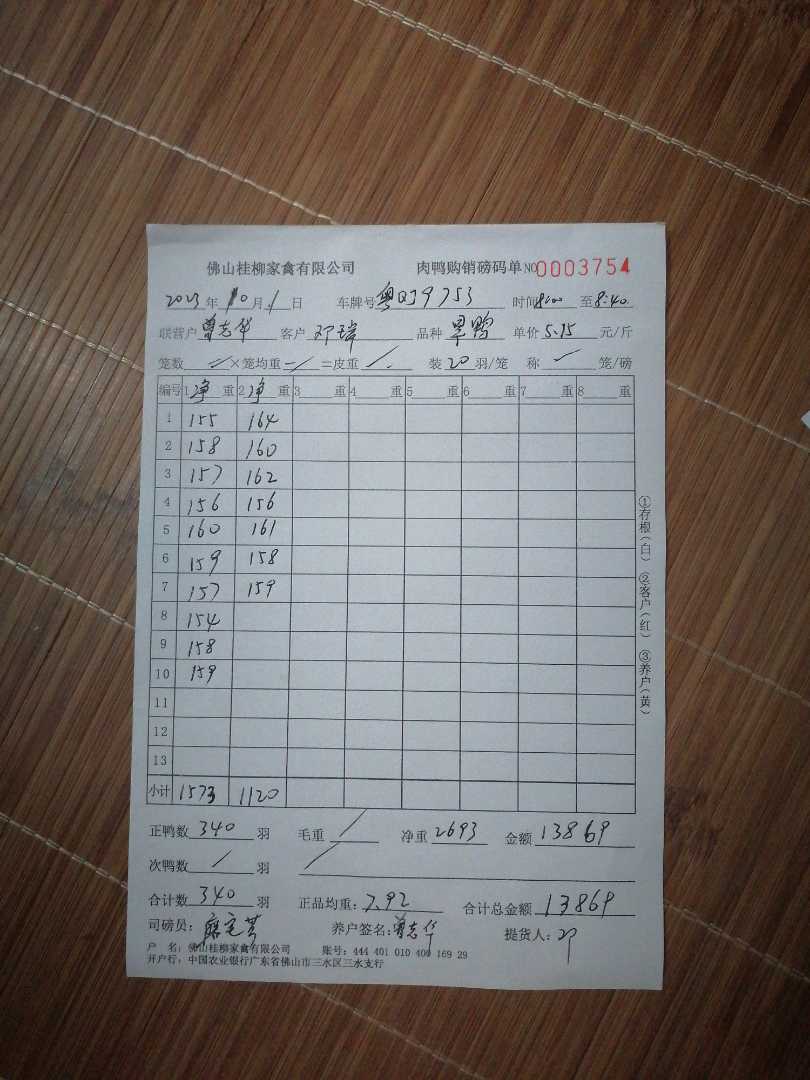 佛山桂柳家禽有限公司 肉鸭购销磅码单 NO 0003754
2023年10月1日 车牌号 时间8:00至8:40
联营户 曾志华 客户 邓璋 品种 旱鸭 单价 5.15 元/斤
笼数 / ×笼均重 / =皮重 / 装20羽/笼 称 / 笼/磅
编号 1净重 2净重 3 重 4 重 5 重 6 重 7 重 8 重
1 155 164
2 158 160
3 157 162
4 156 156
5 160 161
6 159 158
7 157 159
8 154
9 158
10 159
11
12
13
小计 1573 1120
正鸭数 340 羽 毛重 / 净重 2693 金额 13869
次鸭数 / 羽 /
合计数 340 羽 正品均重: 7.92 合计总金额 13869
司磅员: 养户签名: 曾志华 提货人: 邓
户 名: 佛山桂柳家禽有限公司 账号: 444 401 010 400 169 29
开户行: 中国农业银行广东省佛山市三水区三水支行
①存根(白) ②客户(红) ③养户(黄)